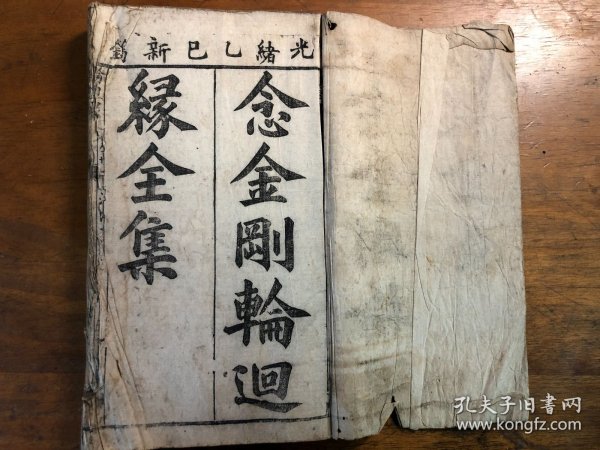 光緒乙巳新鐫
念金剛輪迴
緣全集
孔夫子旧書网
www.kongfz.com